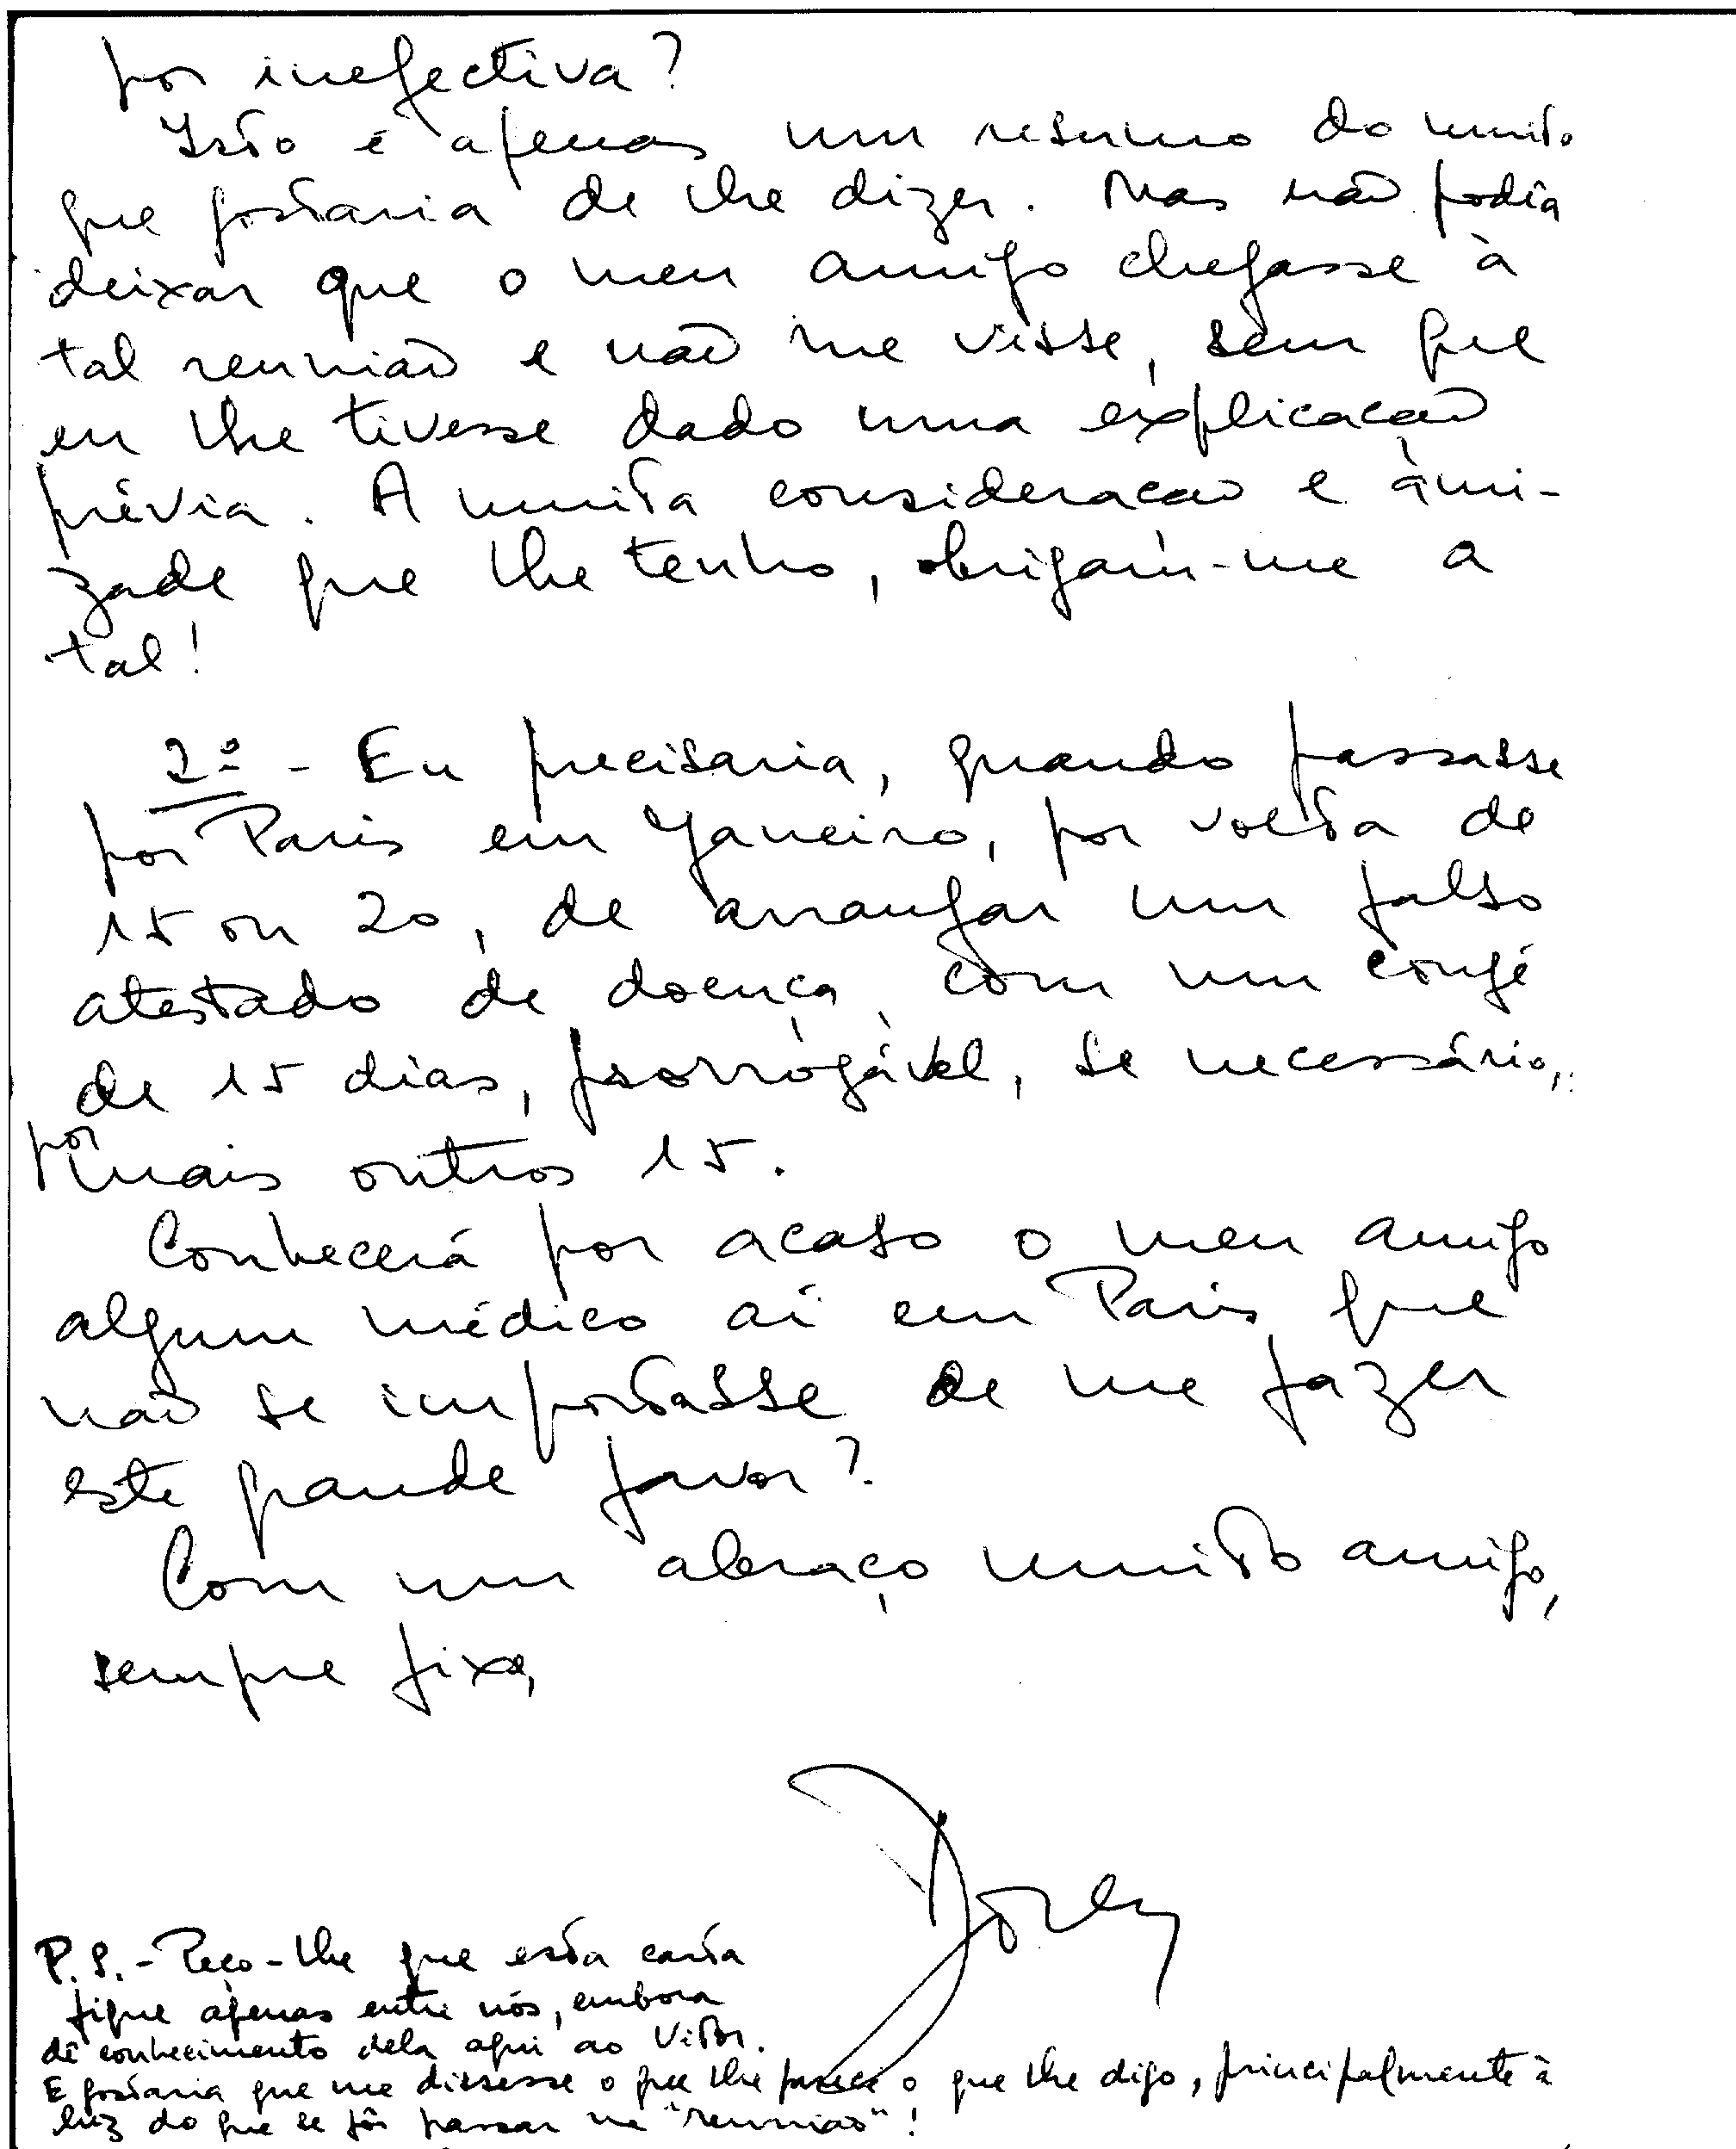 por inefectiva?
Isto é apenas um resumo do muito
que gostaria de lhe dizer. Mas não podia
deixar que o meu amigo chegasse à
tal reunião e não me visse, sem que
eu lhe tivesse dado uma explicação
prévia. A muita consideração e ami-
zade que lhe tenho, obrigam-me a
tal!
2º - Eu precisaria, quando passasse
por Paris em Janeiro, por volta de
15 ou 20, de arranjar um falso
atestado de doença, com um congé
de 15 dias, prorrogável, se necessário,
por mais outros 15.
Conhecerá por acaso o meu amigo
algum médico aí em Paris, que
não se importasse de me fazer
este grande favor?
Com um abraço muito amigo,
sempre fixe,
P.S. - Peço-lhe que esta carta
fique apenas entre nós, embora
dê conhecimento dela aqui ao Vitor.
E gostaria que me dissesse o que lhe parece o que lhe digo, principalmente à
luz do que se passar na "reunião"!